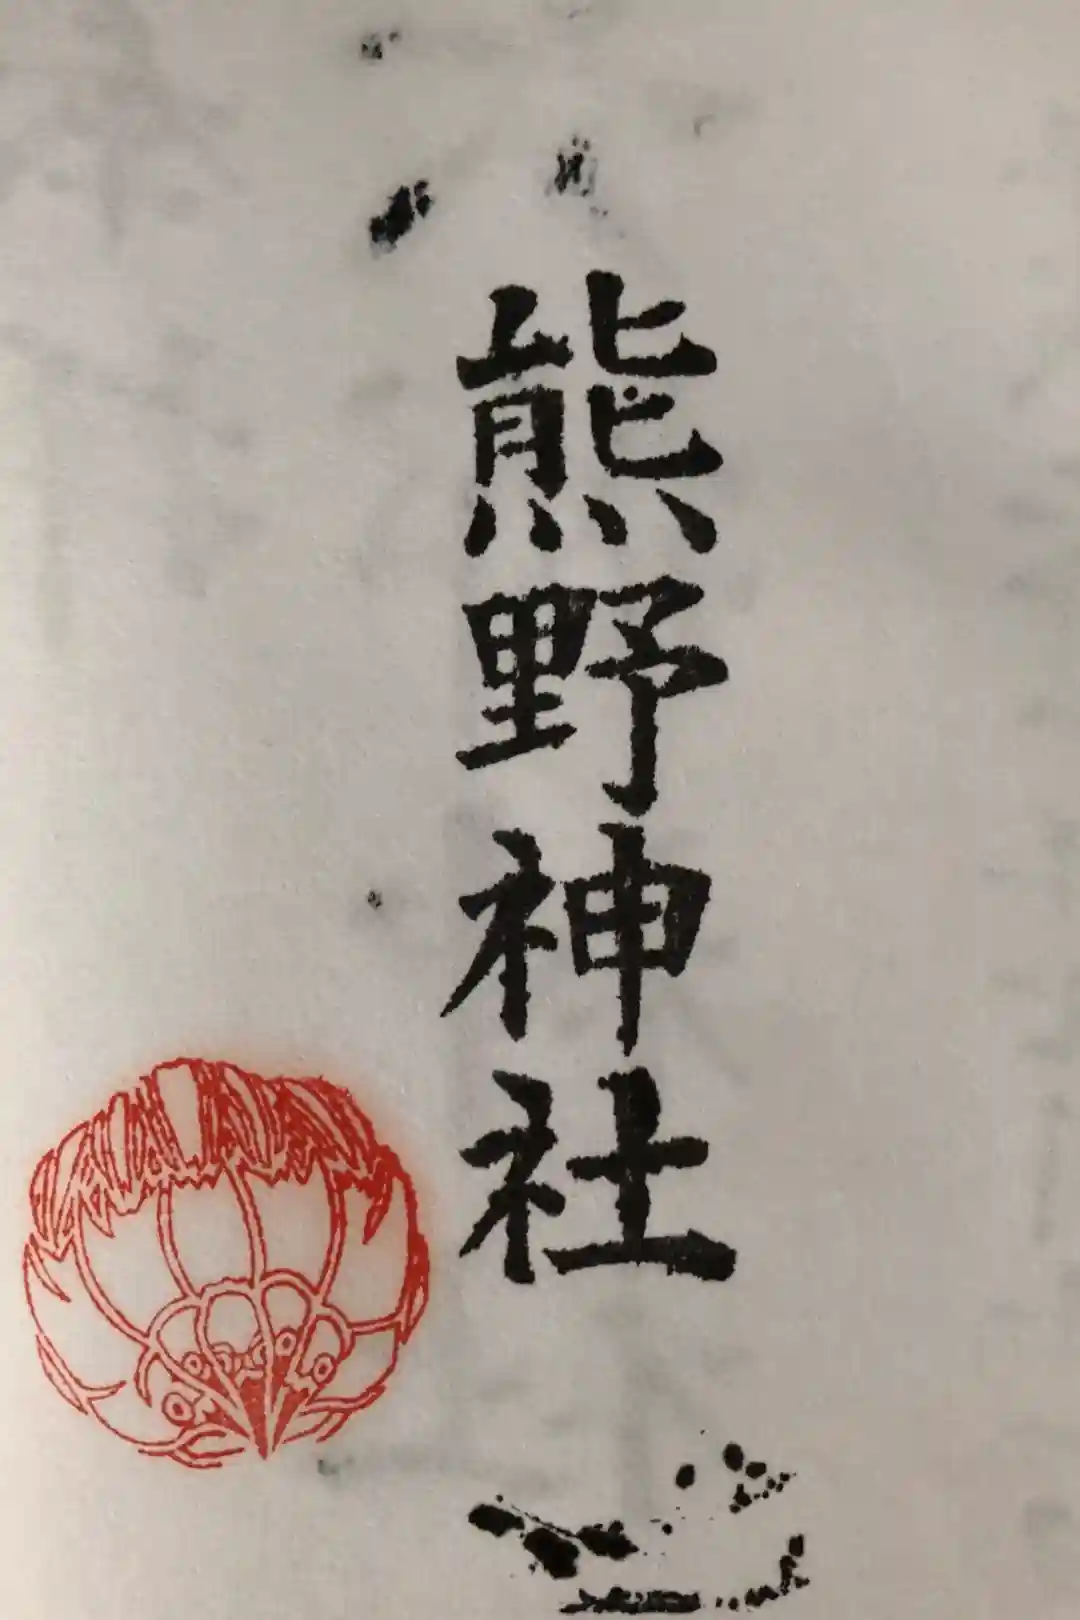 熊野神社